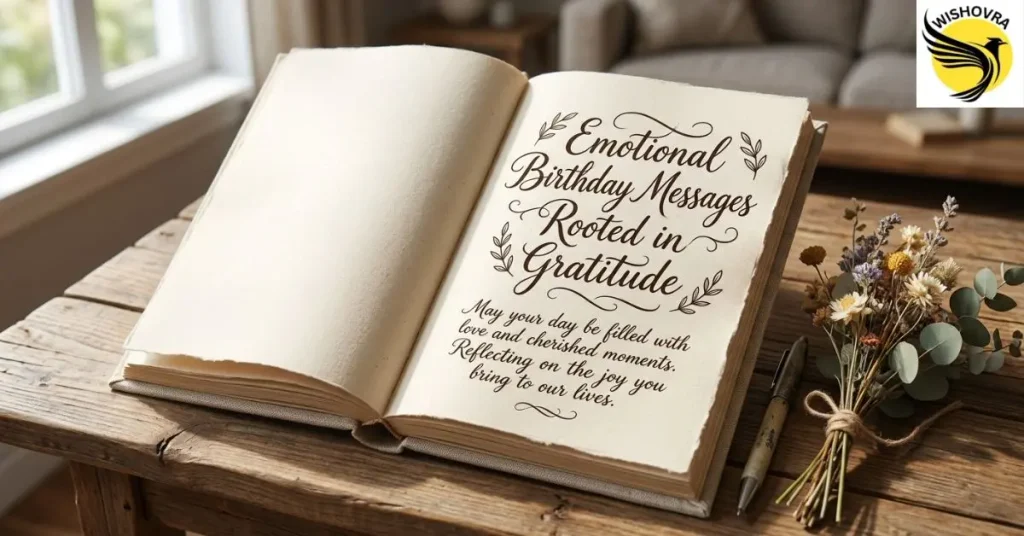 WISHOVRA
Emotional
Birthday Messages
Rooted in
Gratitude
May your day be filled with
love and cherished moments.
Reflecting on the joy you
bring to our lives.